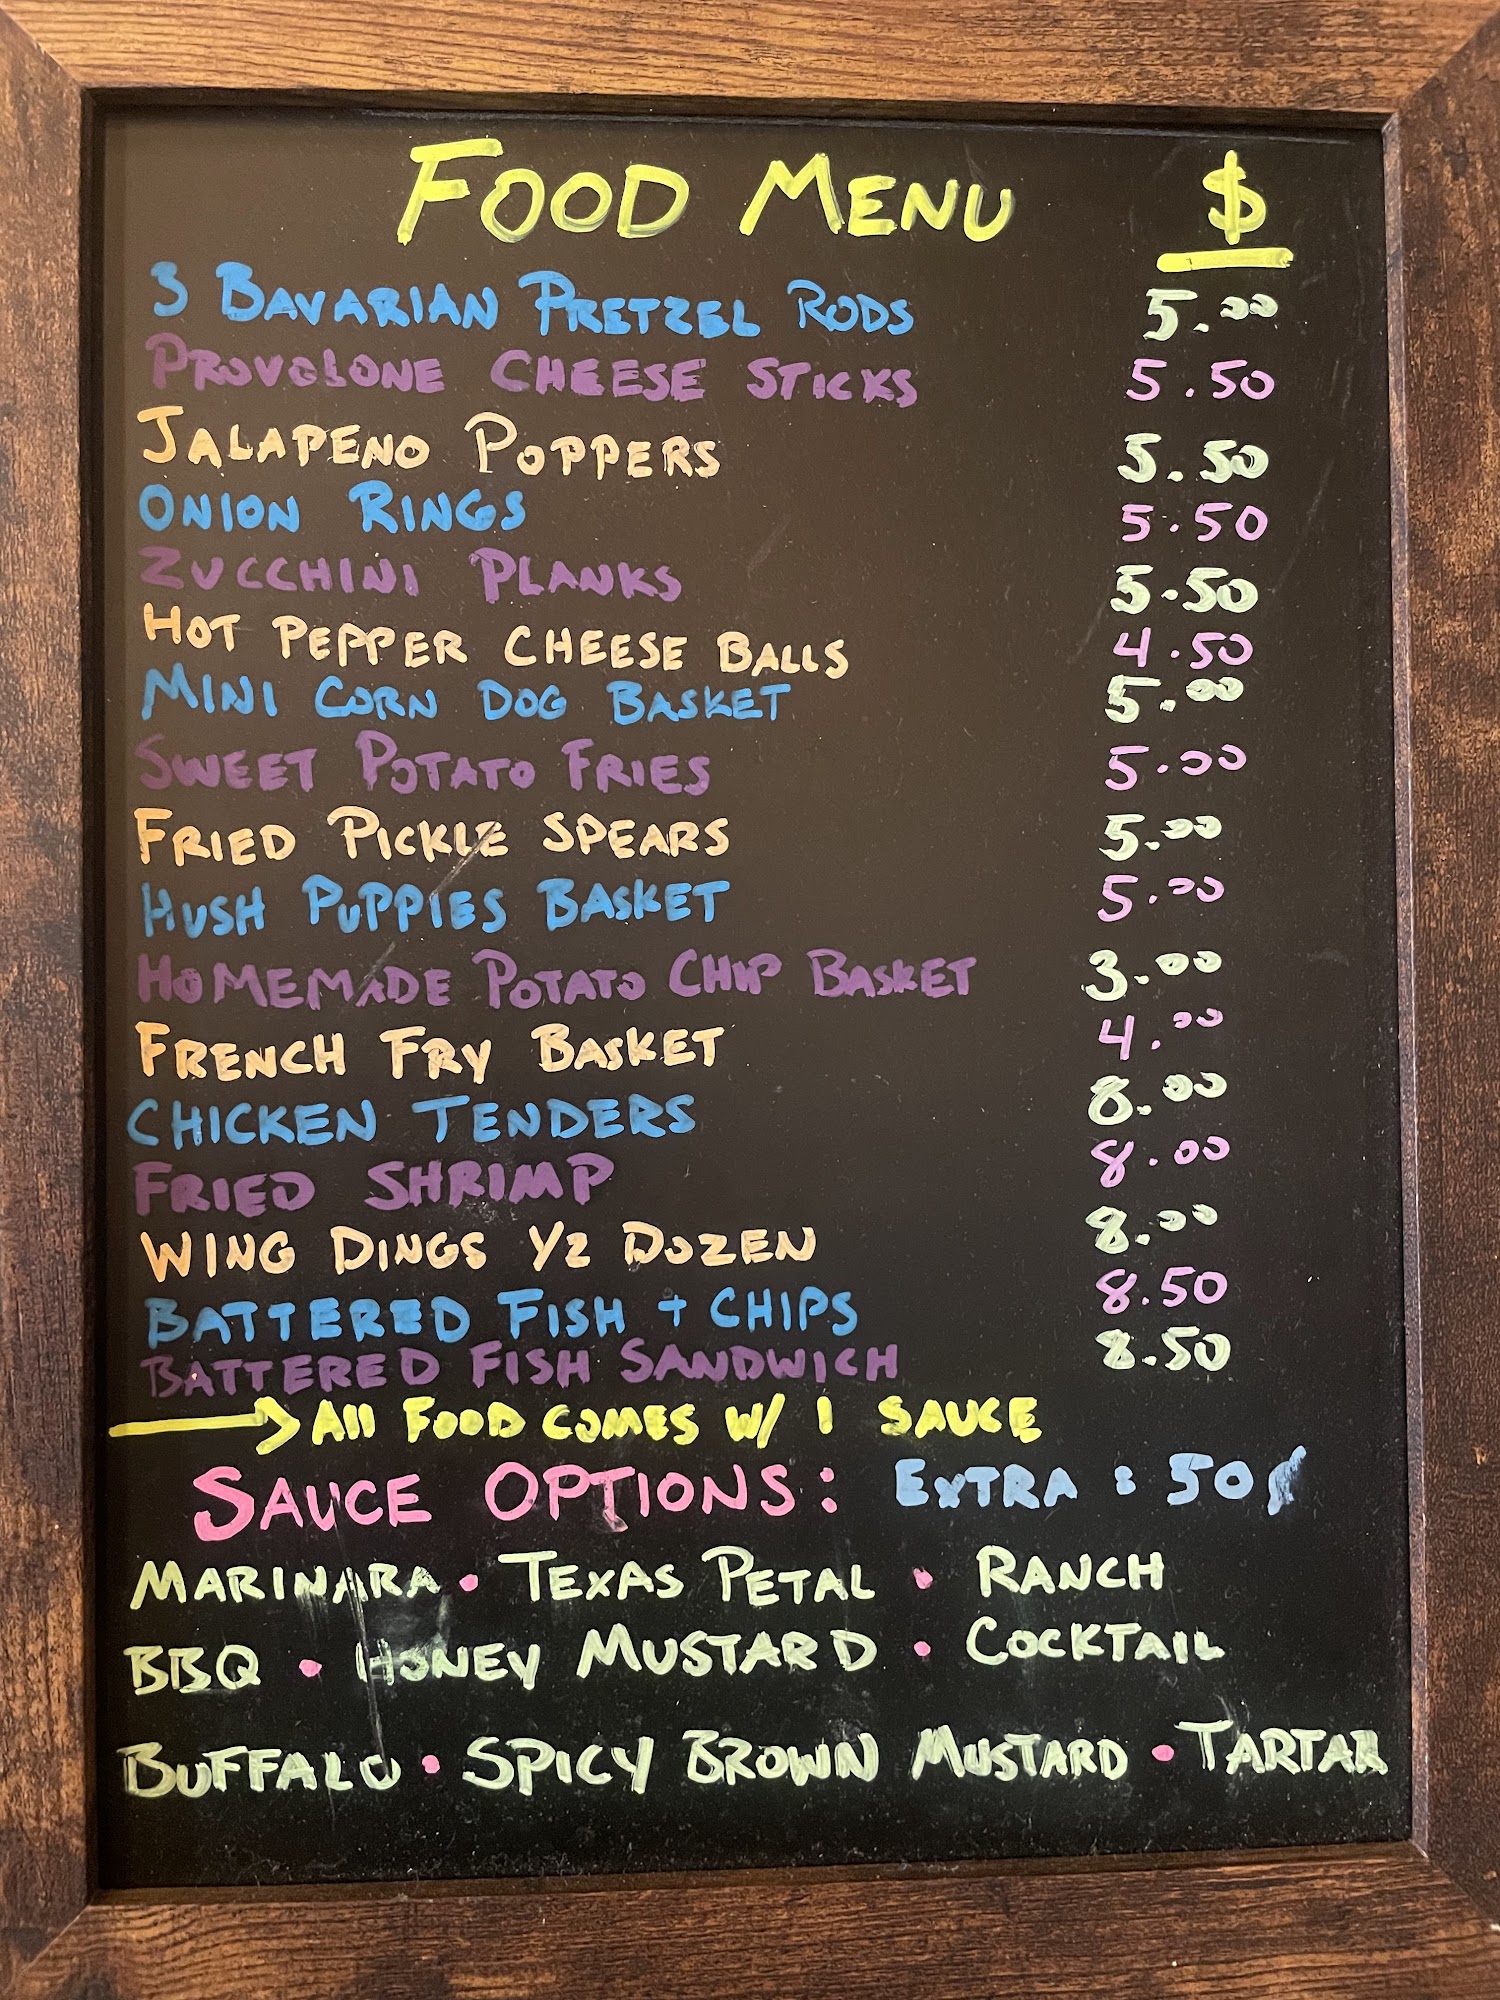 FOOD MENU $
3 BAVARIAN PRETZEL RODS 5.00
PROVOLONE CHEESE STICKS 5.50
JALAPENO POPPERS 5.50
ONION RINGS 5.50
ZUCCHINI PLANKS 5.50
HOT PEPPER CHEESE BALLS 4.50
MINI CORN DOG BASKET 5.00
SWEET POTATO FRIES 5.00
FRIED PICKLE SPEARS 5.00
HUSH PUPPIES BASKET 5.00
HOMEMADE POTATO CHIP BASKET 3.00
FRENCH FRY BASKET 4.00
CHICKEN TENDERS 8.00
FRIED SHRIMP 8.00
WING DINGS 1/2 DOZEN 8.00
BATTERED FISH + CHIPS 8.50
BATTERED FISH SANDWICH 8.50
→ All FOOD COMES W/ 1 SAUCE
SAUCE OPTIONS: EXTRA : 50¢
MARINARA • TEXAS PETAL • RANCH
BBQ • HONEY MUSTARD • COCKTAIL
BUFFALO • SPICY BROWN MUSTARD • TARTAR